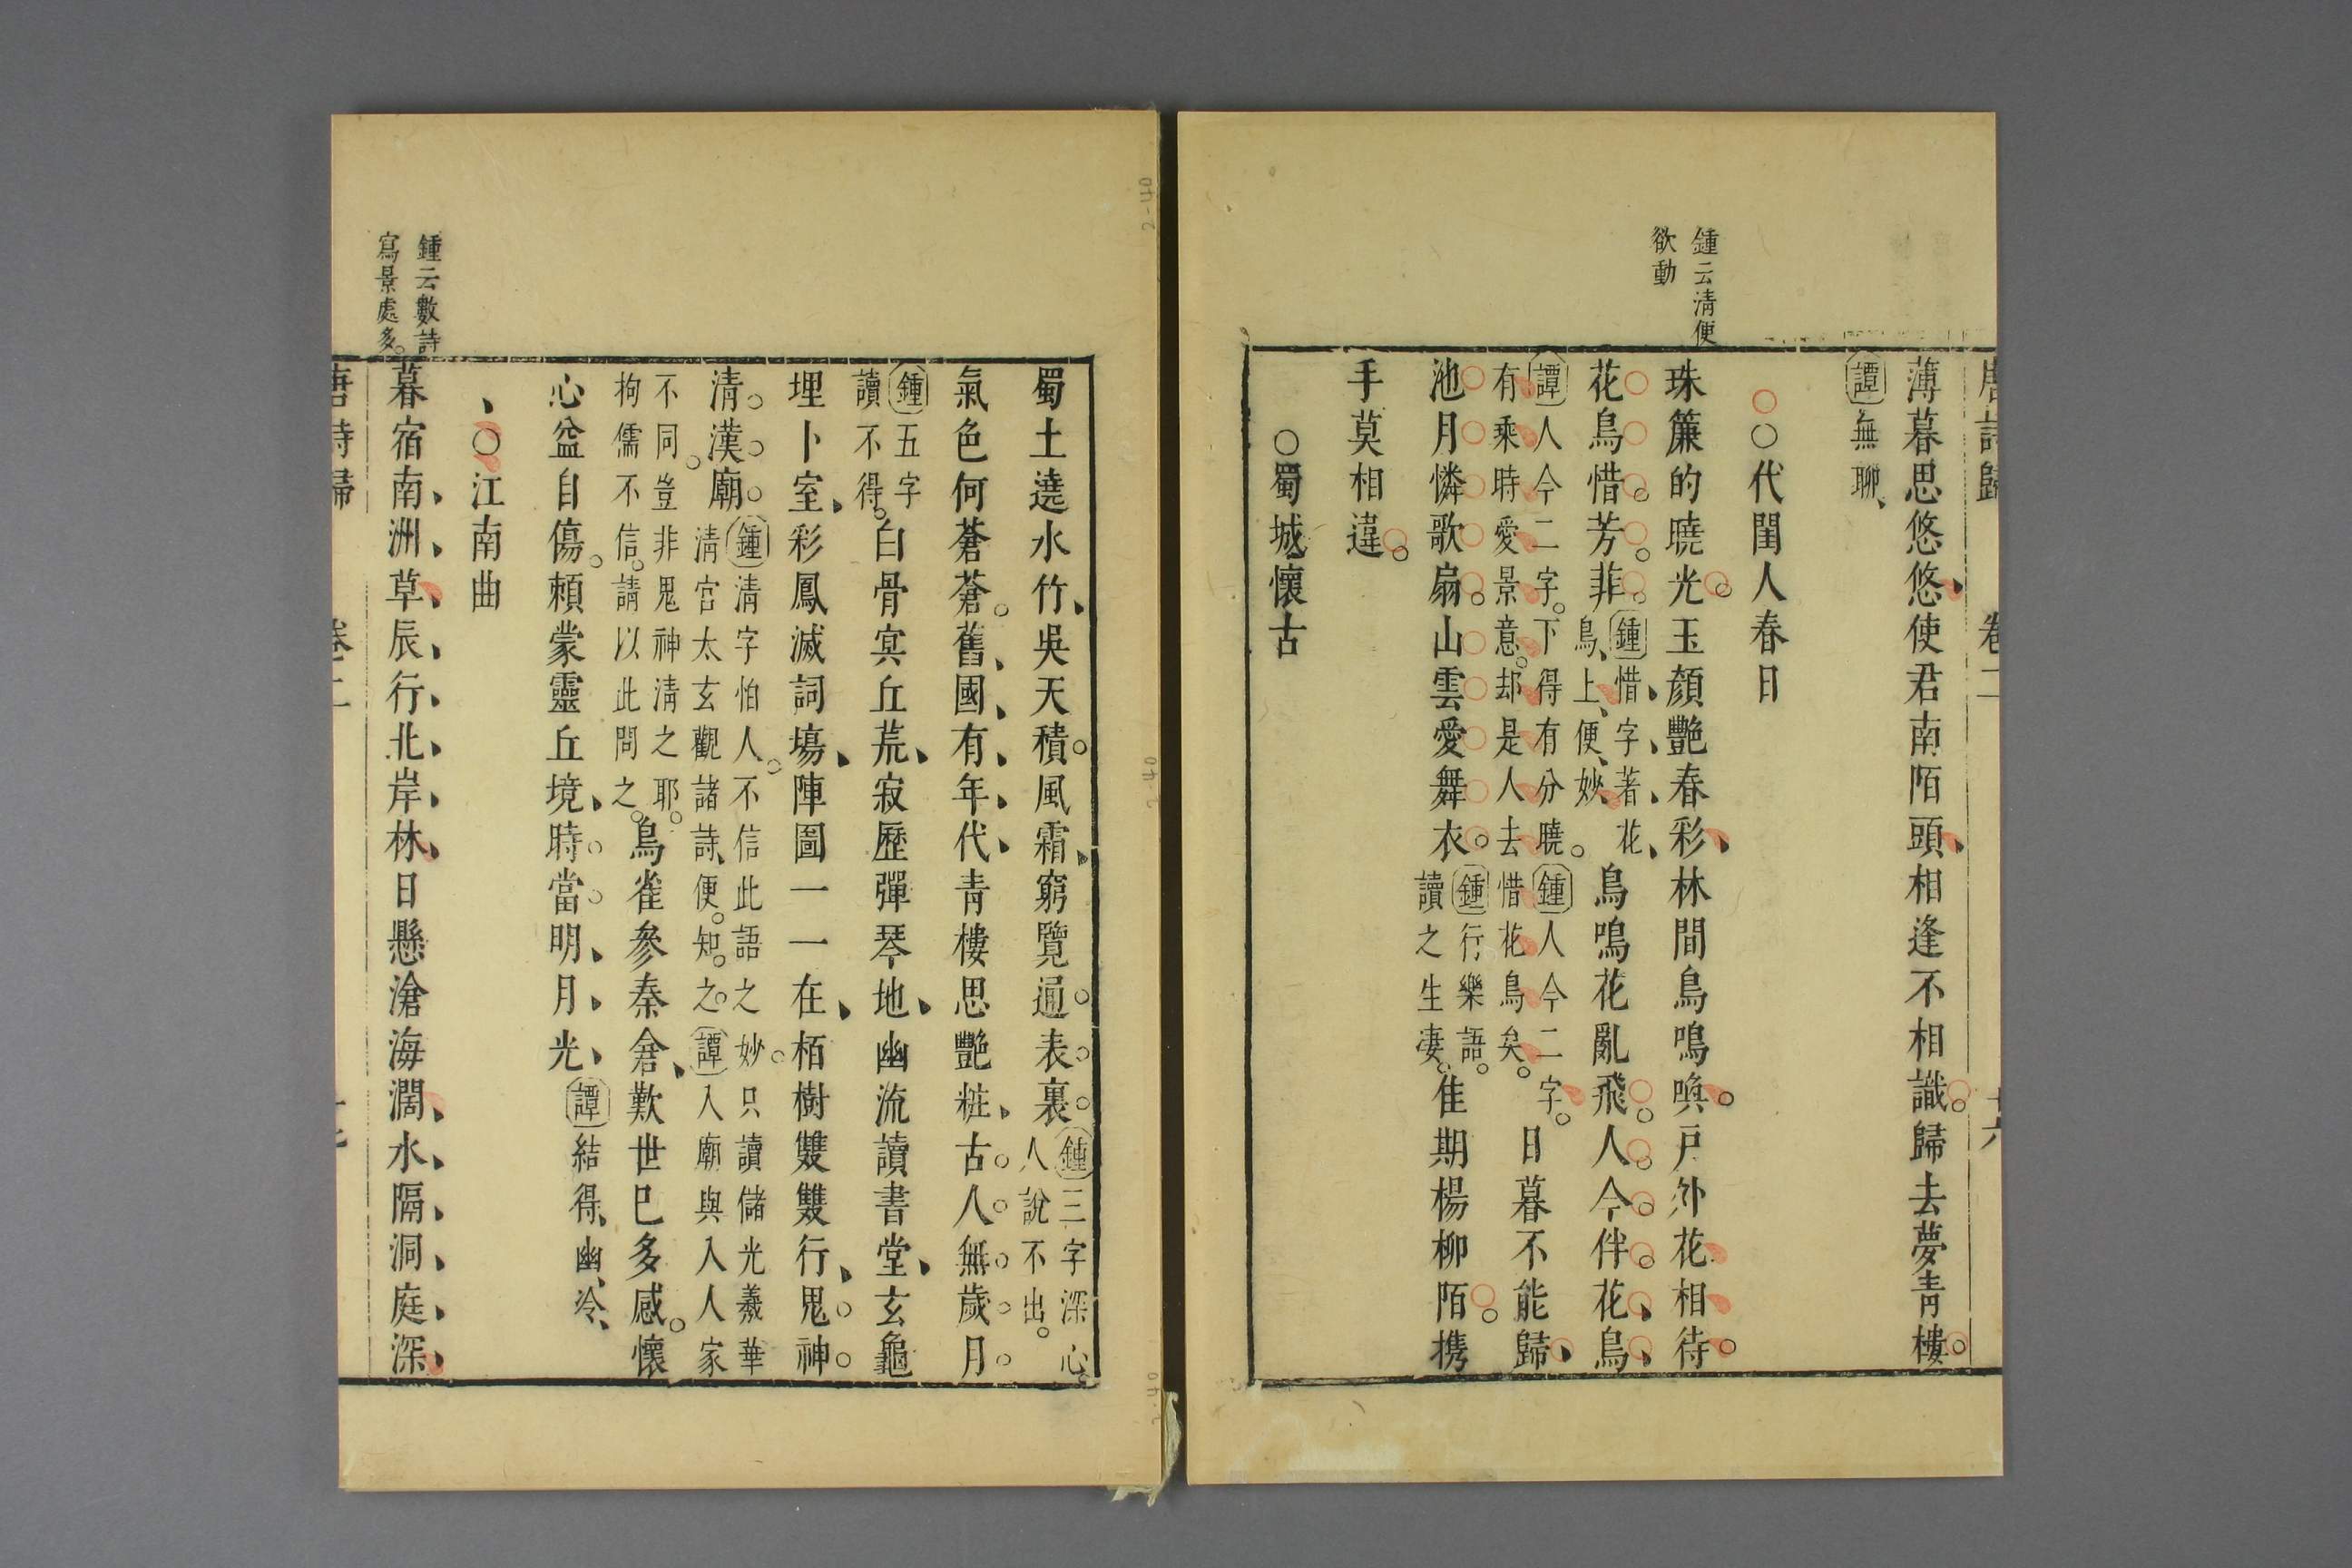 唐詩歸 卷二 十六
薄暮思悠悠使君南陌頭相逢不相識歸去夢青樓
譚無聊
○○代閨人春日
鍾云清便
欲動
珠簾的曉光玉顏艷春彩林間鳥鳴喚戶外花相待
花鳥惜芳菲
鍾惜字著花
鳥上便妙
鳥鳴花亂飛人今伴花鳥
譚人今二字下得有分曉鍾人今二字
有乘時愛景意却是人去惜花鳥矣
日暮不能歸
池月憐歌扇山雲愛舞衣
鍾行樂語
讀之生凄
佳期楊柳陌携
手莫相違
○蜀城懷古
蜀土遶水竹吳天積風霜窮覽通表裏
鍾三字深心
人說不出
氣色何蒼蒼舊國有年代青樓思艷粧古人無歲月
鍾五字
讀不得
白骨宾丘荒寂歷彈琴地幽流讀書堂玄龜
埋卜室彩鳳滅詞塲陣圖一一在栢樹雙雙行鬼神
清漢廟
鍾清字怕人不信此語之妙只讀儲光羲華
清宫太玄觀諸詩便知之譚入廟與入人家
不同豈非鬼神清之耶
拘儒不信請以此問之
鳥雀參秦倉歎世已多感懷
心益自傷賴蒙靈丘境時當明月光
譚結得幽冷
○江南曲
鍾云數詩
寫景處多
暮宿南洲草辰行北岸林日懸滄海濶水隔洞庭深
唐詩歸 卷二 十七